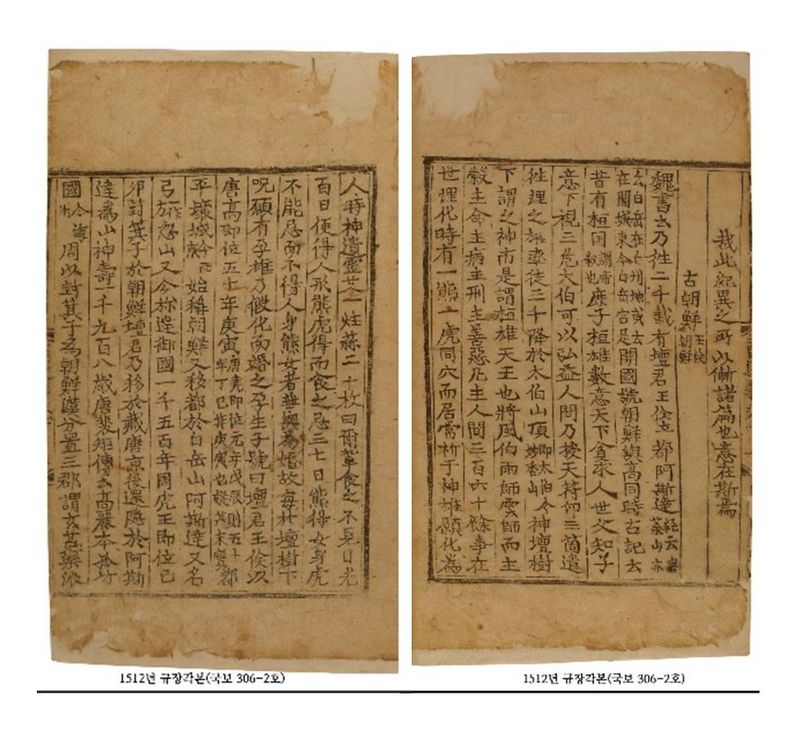 哉此紀異之所以漸諸篇也意在斯焉
古朝鮮 王儉朝鮮
魏書云乃徃二千載有壇君王儉立都阿斯達 經云無葉山亦
云白岳在白州地或云在開城東今白岳宮是 開國號朝鮮與高同時古記云
昔有桓国 謂帝釋也 庶子桓雄數意天下貪求人世父知子
意下視三危太伯可以弘益人間乃授天符印三箇遣
徃理之雄率徒三千降於太伯山頂 即太伯今妙香山 神壇樹
下謂之神市是謂桓雄天王也將風伯雨師雲師而主
穀主命主病主刑主善惡凡主人間三百六十餘事在
世理化時有一熊一虎同穴而居常祈于神雄願化爲
1512년 규장각본(국보 306-2호)
人時神遺靈艾一炷蒜二十枚曰爾軰食之不見日光
百日便得人形熊虎得而食之忌三七日熊得女身虎
不能忌而不得人身熊女者無與爲婚故每於壇樹下
呪願有孕雄乃假化而婚之孕生子號曰壇君王儉以
唐高即位五十年庚寅 唐堯即位元年戊辰則五十年丁巳非庚寅也疑其未實 都
平壤城 今西京 始稱朝鮮又移都於白岳山阿斯達又名
弓 一作方 忽山又今彌達御國一千五百年周虎王即位己
卯封箕子於朝鮮壇君乃移於藏唐京後還隱於阿斯
達爲山神壽一千九百八歲唐裵矩傳云高麗本孤竹
國 今海州 周以封箕子爲朝鮮漢分置三郡謂玄菟樂浪
1512년 규장각본(국보 306-2호)